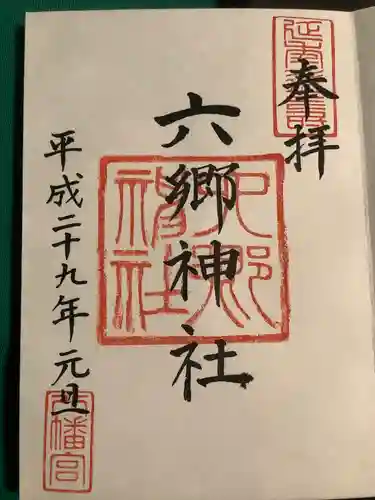 奉拝
六郷神社
六郷神社
平成二十九年元旦
八幡宮